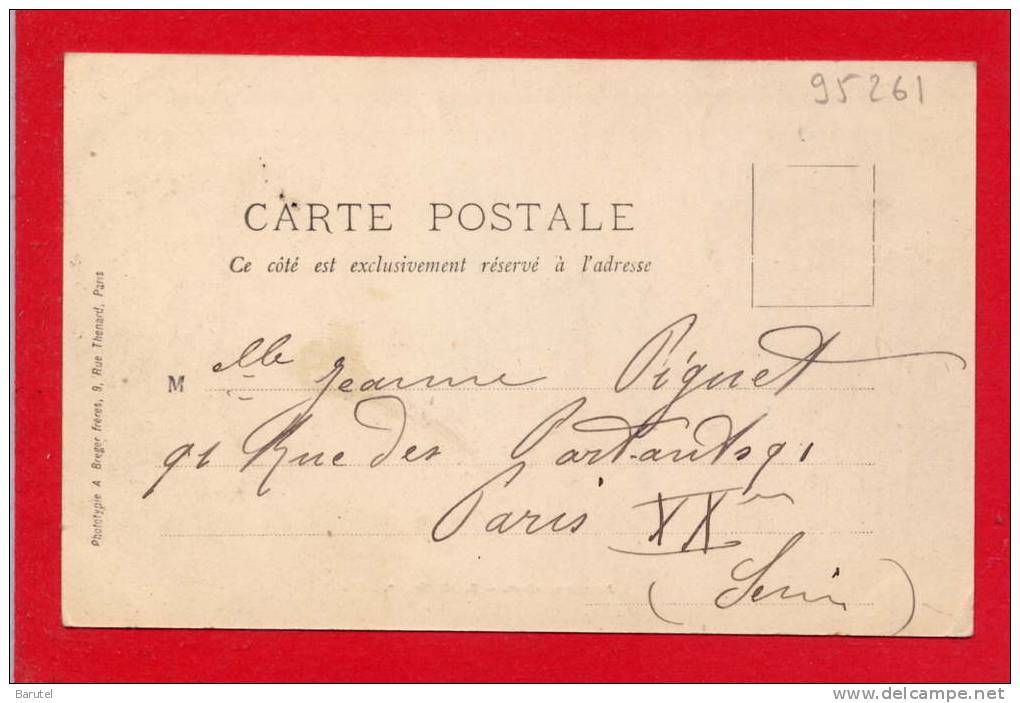 95261
CARTE POSTALE
Ce côté est exclusivement réservé à l'adresse
Melle Jeanne Piguet
91 Rue des Partants 91
Paris XXme
(Seine)
Phototypie A. Breger frères, 9, Rue Thenard, Paris
Barutel
www.delcampe.net